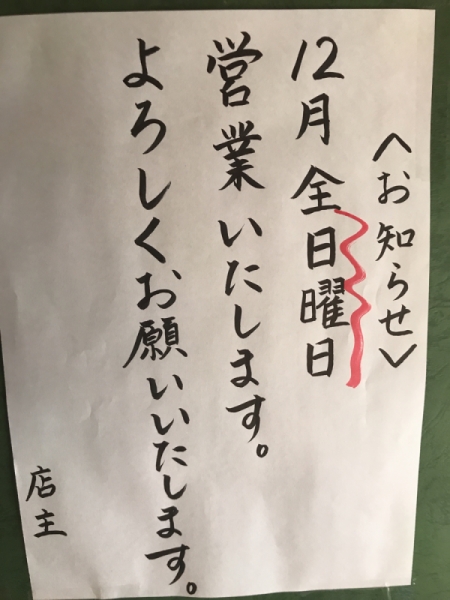 <お知らせ>
12月全日曜日
営業いたします。
よろしくお願いいたします。
店主